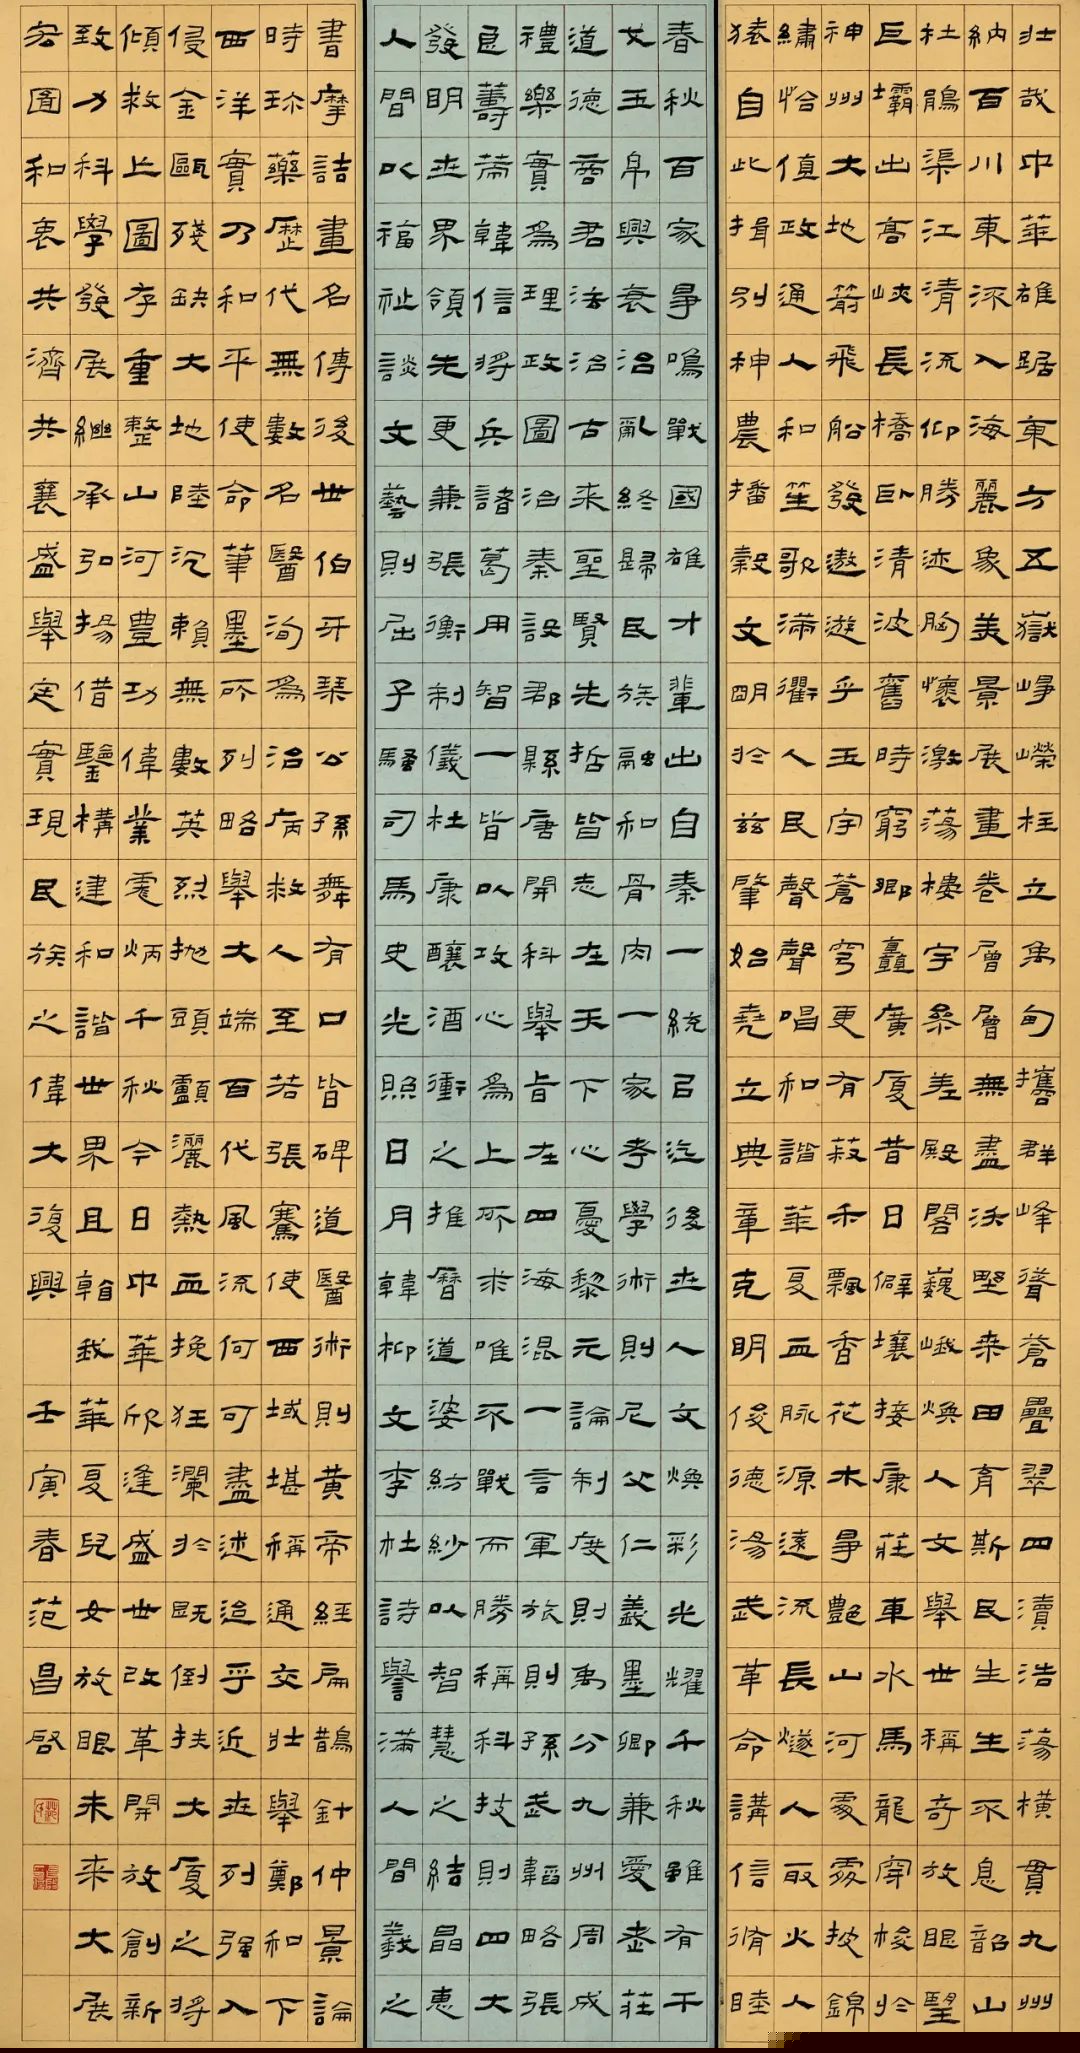 壯哉中華雄踞東方五嶽崢嶸柱立禹甸攜群峰聳蒼疊翠四瀆浩蕩橫貫九州
納百川東流入海麗象美景展畫卷層層無盡沃野桑田育斯民生生不息韶山
杜鵑渠江清流仰勝迹胸懷激蕩樓宇參差殿閣巍峨煥人文舉世稱奇放眼望
巨壩出高峽長橋臥清波舊時窮鄉矗廣廈昔日僻壤接康莊車水馬龍穿梭於
神州大地箭飛船發遨遊乎玉宇蒼穹更有菽禾飄香花木爭艷山河處處披錦
繡恰值政通人和笙歌滿衢人民聲聲唱和諧華夏血脉源遠流長燧人取火人
猿自此揖別神農播穀文明於茲肇始堯立典章克明俊德湯武革命講信脩睦
春秋百家爭鳴戰國雄才輩出自秦一統已迄後世人文煥彩光耀千秋雖有干
戈玉帛興衰治亂終歸民族融和骨肉一家考學術則尼父仁義墨卿兼愛老莊
道德商君法治古來聖賢先哲皆志在天下心憂黎元論制度則禹分九州周成
禮樂實為理政圖治秦設郡縣唐開科舉旨在四海混一言軍旅則孫武韜略張
良籌策韓信將兵諸葛用智一皆以攻心為上所求唯不戰而勝稱科技則四大
發明世界領先更兼張衡制儀杜康釀酒衝之推曆道婆紡紗以智慧之結晶惠
人間以福祉談文藝則屈子騷司馬史光照日月韓柳文李杜詩譽滿人間羲之
書摩詰畫名傳後世伯牙琴公孫舞有口皆碑道醫術則黃帝經扁鵲針仲景論
時珍藥歷代無數名醫洵為治病救人至若張騫使西域堪稱通交壯舉鄭和下
西洋實乃和平使命筆墨所列略舉大端百代風流何可盡述迨乎近世列強入
侵金甌殘缺大地陸沉賴無數英烈拋頭顱灑熱血挽狂瀾於既倒扶大廈之將
傾救亡圖存重整山河豐功偉業炳千秋今日中華欣逢盛世改革開放創新
致力科學發展繼承弘揚借鑒構建和諧世界且我華夏兒女放眼未來大展
宏圖和衷共濟共襄盛舉定實現民族之偉大復興 壬寅春范昌啓